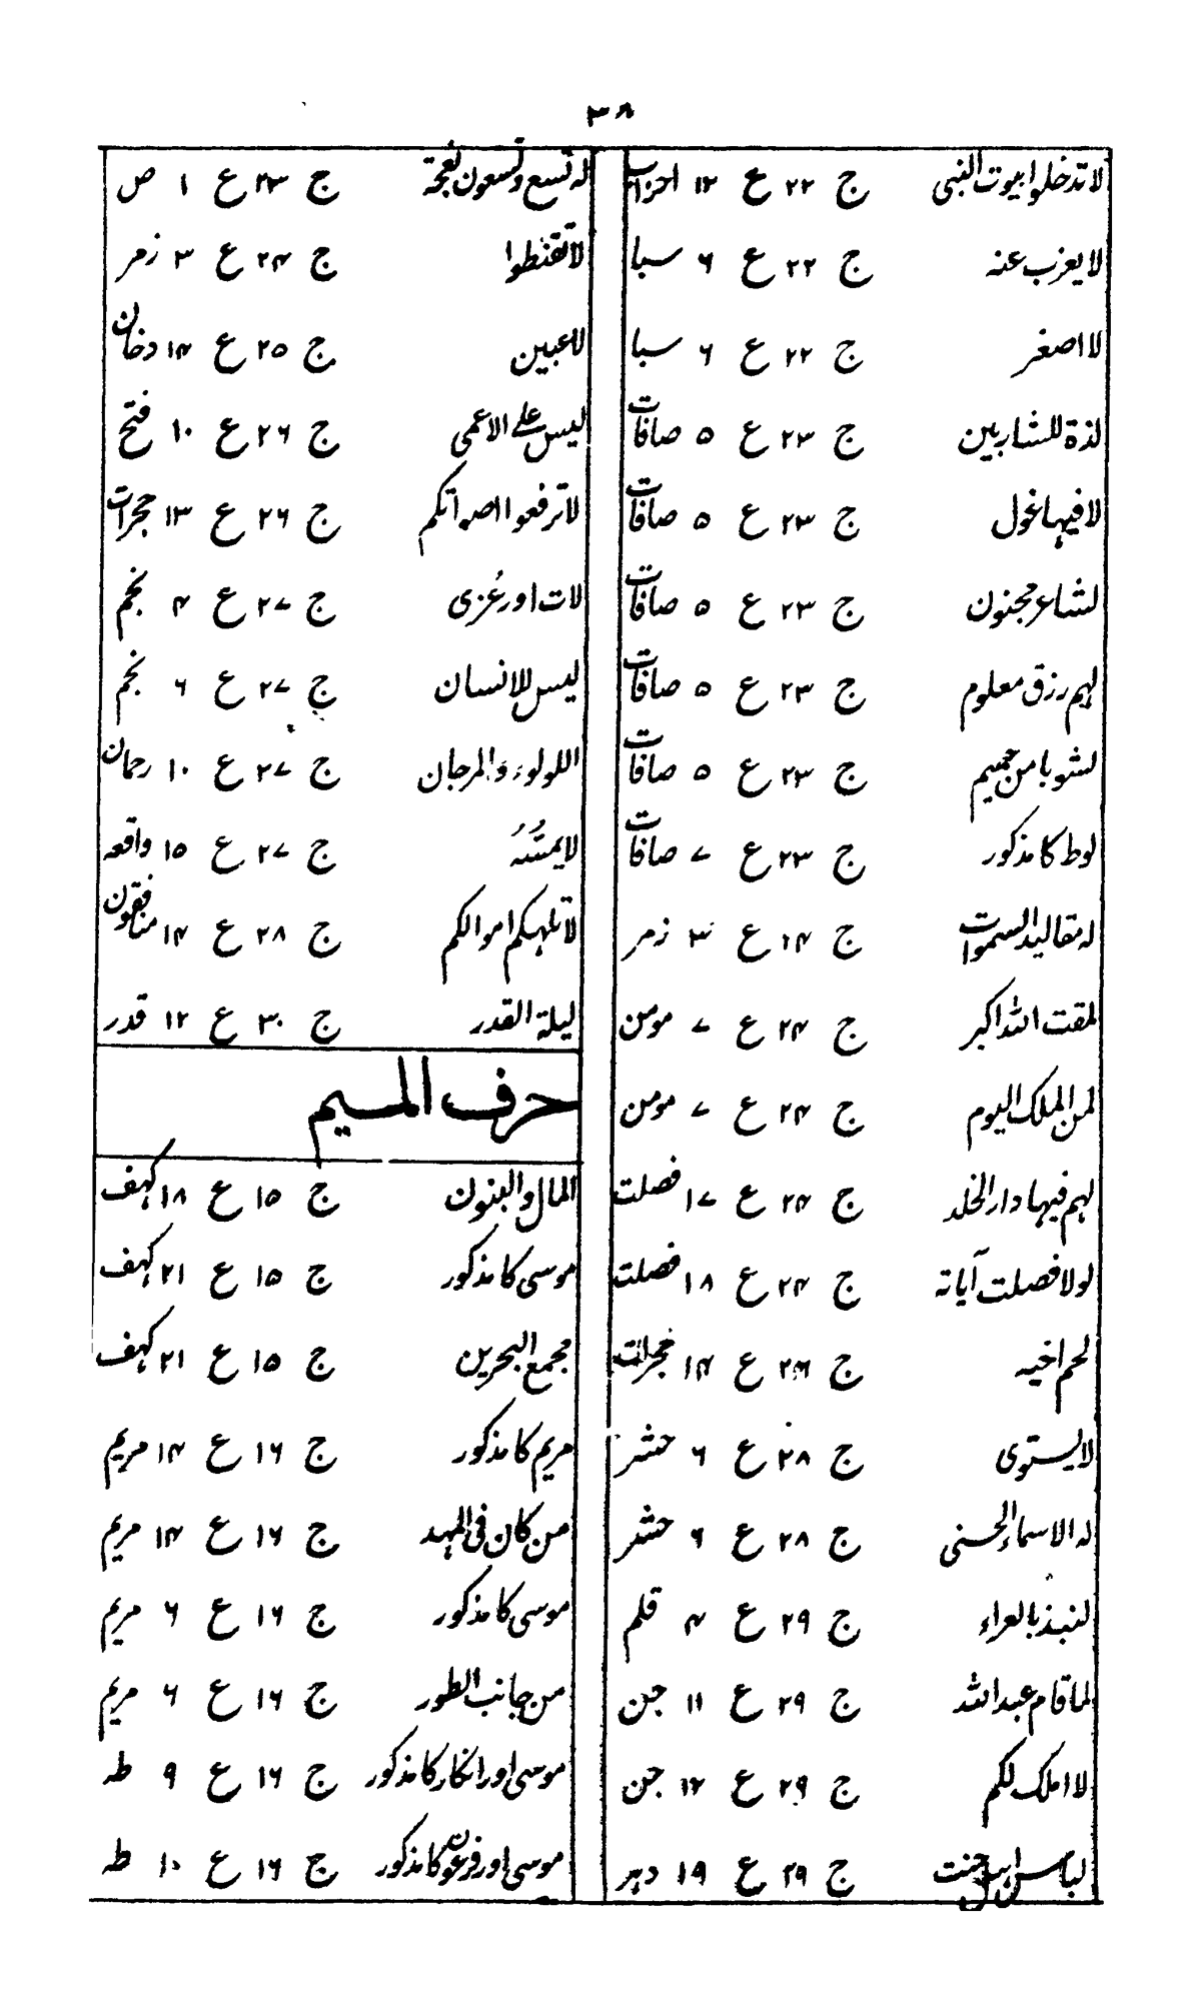 ۳۸
لا تدخلوا بیوت النبی ج ۲۲ ع ۱۲ احزاب
لا یعزب عنہ ج ۲۲ ع ۶ سبا
لا اصغر ج ۲۲ ع ۶ سبا
لذۃ للشاربین ج ۲۳ ع ۵ صافات
لا فیہا غول ج ۲۳ ع ۵ صافات
لشاعر مجنون ج ۲۳ ع ۵ صافات
لہم رزق معلوم ج ۲۳ ع ۵ صافات
لشوبا من حمیم ج ۲۳ ع ۵ صافات
لوط کا مذکور ج ۲۳ ع ۷ صافات
لہ مقالید السموات ج ۱۴ ع ۳ زمر
لمقت اللہ اکبر ج ۲۴ ع ۷ مومن
لمن الملک الیوم ج ۲۴ ع ۷ مومن
لہم فیہا دار الخلد ج ۲۴ ع ۱۷ فصلت
لولا فصلت آیاتہ ج ۲۴ ع ۱۸ فصلت
لحم اخیہ ج ۲۶ ع ۱۴ حجرات
لا یستوی ج ۲۸ ع ۶ حشر
لہ الاسماء الحسنی ج ۲۸ ع ۶ حشر
لنبذ بالعراء ج ۲۹ ع ۴ قلم
لما قام عبد اللہ ج ۲۹ ع ۱۱ جن
لا املک لکم ج ۲۹ ع ۱۲ جن
لباس اہل جنت ج ۲۹ ع ۱۹ دہر
لہ تسع وتسعون نعجۃ ج ۲۳ ع ۱ ص
لا تقنطوا ج ۲۴ ع ۳ زمر
لاعبین ج ۲۵ ع ۱۴ دخان
لیس علے الاعمی ج ۲۶ ع ۱۰ فتح
لا ترفعوا اصواتکم ج ۲۶ ع ۱۳ حجرات
لات اور عُزی ج ۲۷ ع ۴ نجم
لیس للانسان ج ۲۷ ع ۶ نجم
اللولوء والمرجان ج ۲۷ ع ۱۰ رحمان
لا یمسُّہُ ج ۲۷ ع ۱۵ واقعہ
لا تلہکم اموالکم ج ۲۸ ع ۱۴ منافقون
لیلۃ القدر ج ۳۰ ع ۱۲ قدر
حرف المیم
المال والبنون ج ۱۵ ع ۱۸ کہف
موسی کا مذکور ج ۱۵ ع ۲۱ کہف
مجمع البحرین ج ۱۵ ع ۲۱ کہف
مریم کا مذکور ج ۱۶ ع ۱۴ مریم
من کان فی المہد ج ۱۶ ع ۱۴ مریم
موسی کا مذکور ج ۱۶ ع ۶ مریم
من جانب الطور ج ۱۶ ع ۶ مریم
موسی اور انکار کا مذکور ج ۱۶ ع ۹ طہ
موسی اور فرعون کا مذکور ج ۱۶ ع ۱۰ طہ